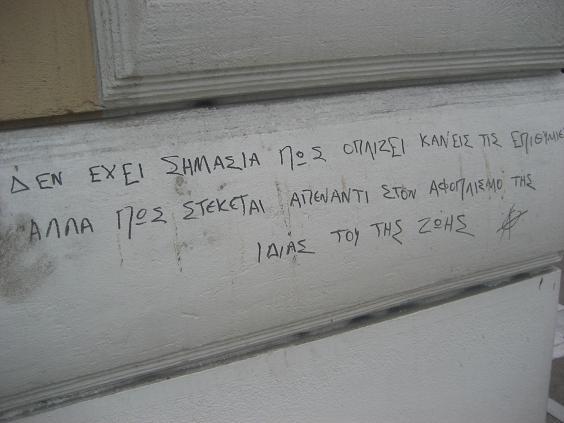 ΔΕΝ ΕΧΕΙ ΣΗΜΑΣΙΑ ΠΩΣ ΟΠΛΙΖΕΙ ΚΑΝΕΙΣ ΤΙΣ ΕΠΙΘΥΜΙΕ
ΑΛΛΑ ΠΩΣ ΣΤΕΚΕΤΑΙ ΑΠΕΝΑΝΤΙ ΣΤΟΝ ΑΦΟΠΛΙΣΜΟ ΤΗΣ
ΙΔΙΑΣ ΤΟΥ ΤΗΣ ΖΩΗΣ